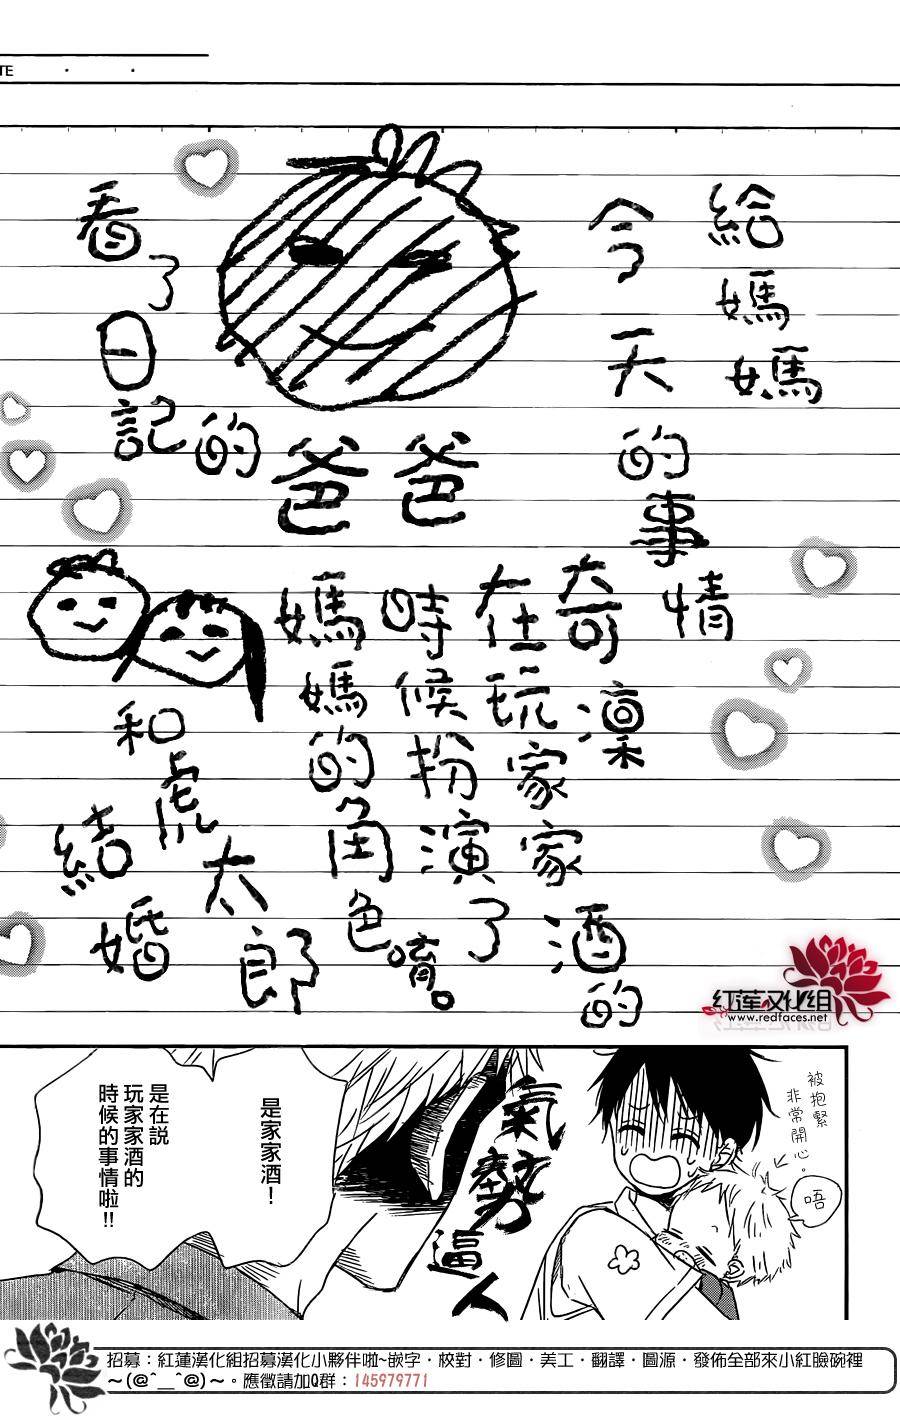 TE
給媽媽
今天的事情
奇凜
在玩家家酒的
時候扮演了
媽媽的角色唷。
和虎太郎
結婚
看了日記的
爸爸
紅蓮文化組
www.redfaces.net
被抱緊
非常開心。
唔
氣勢逼人
是家家酒！
是在說
玩家家酒的
時候的事情啦!!
招募：紅蓮漢化組招募漢化小夥伴啦~嵌字·校對·修圖·美工·翻譯·圖源·發佈全部來小紅臉碗裡
～(@^__^@)～。應徵請加Q群：145979771